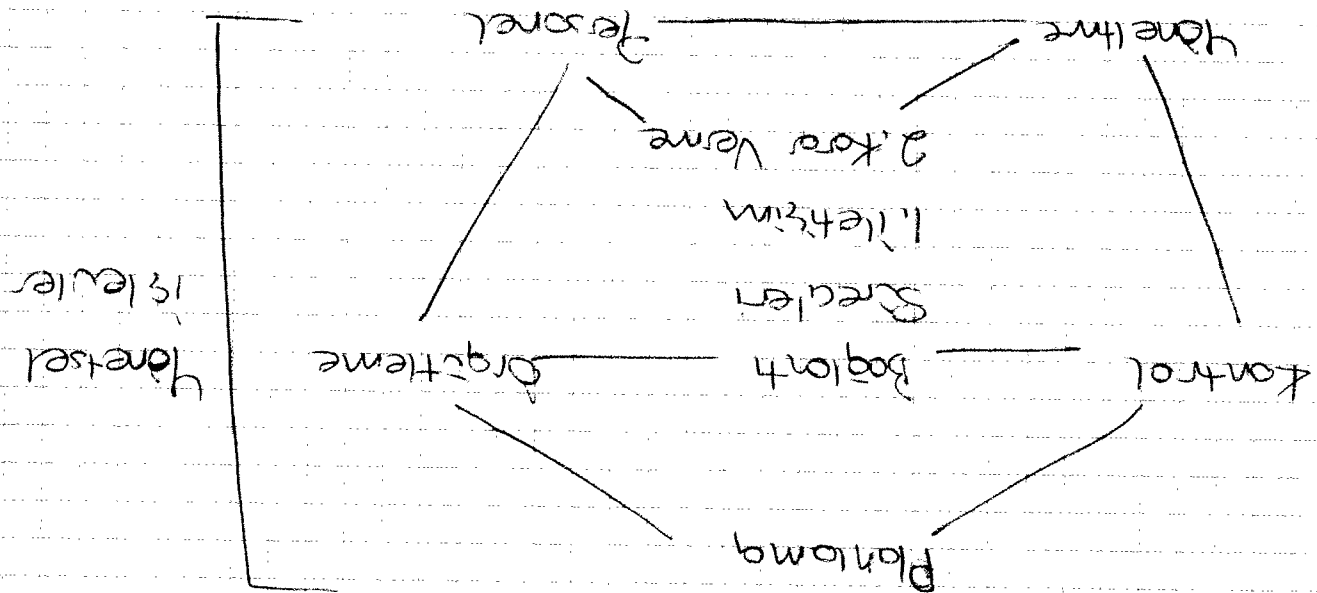 Planlama
Kontrol Bağlantı Örgütleme Yönetsel
Süreçleri İşlevler
1. İletişim
2. Karar Verme
Yöneltme Personel